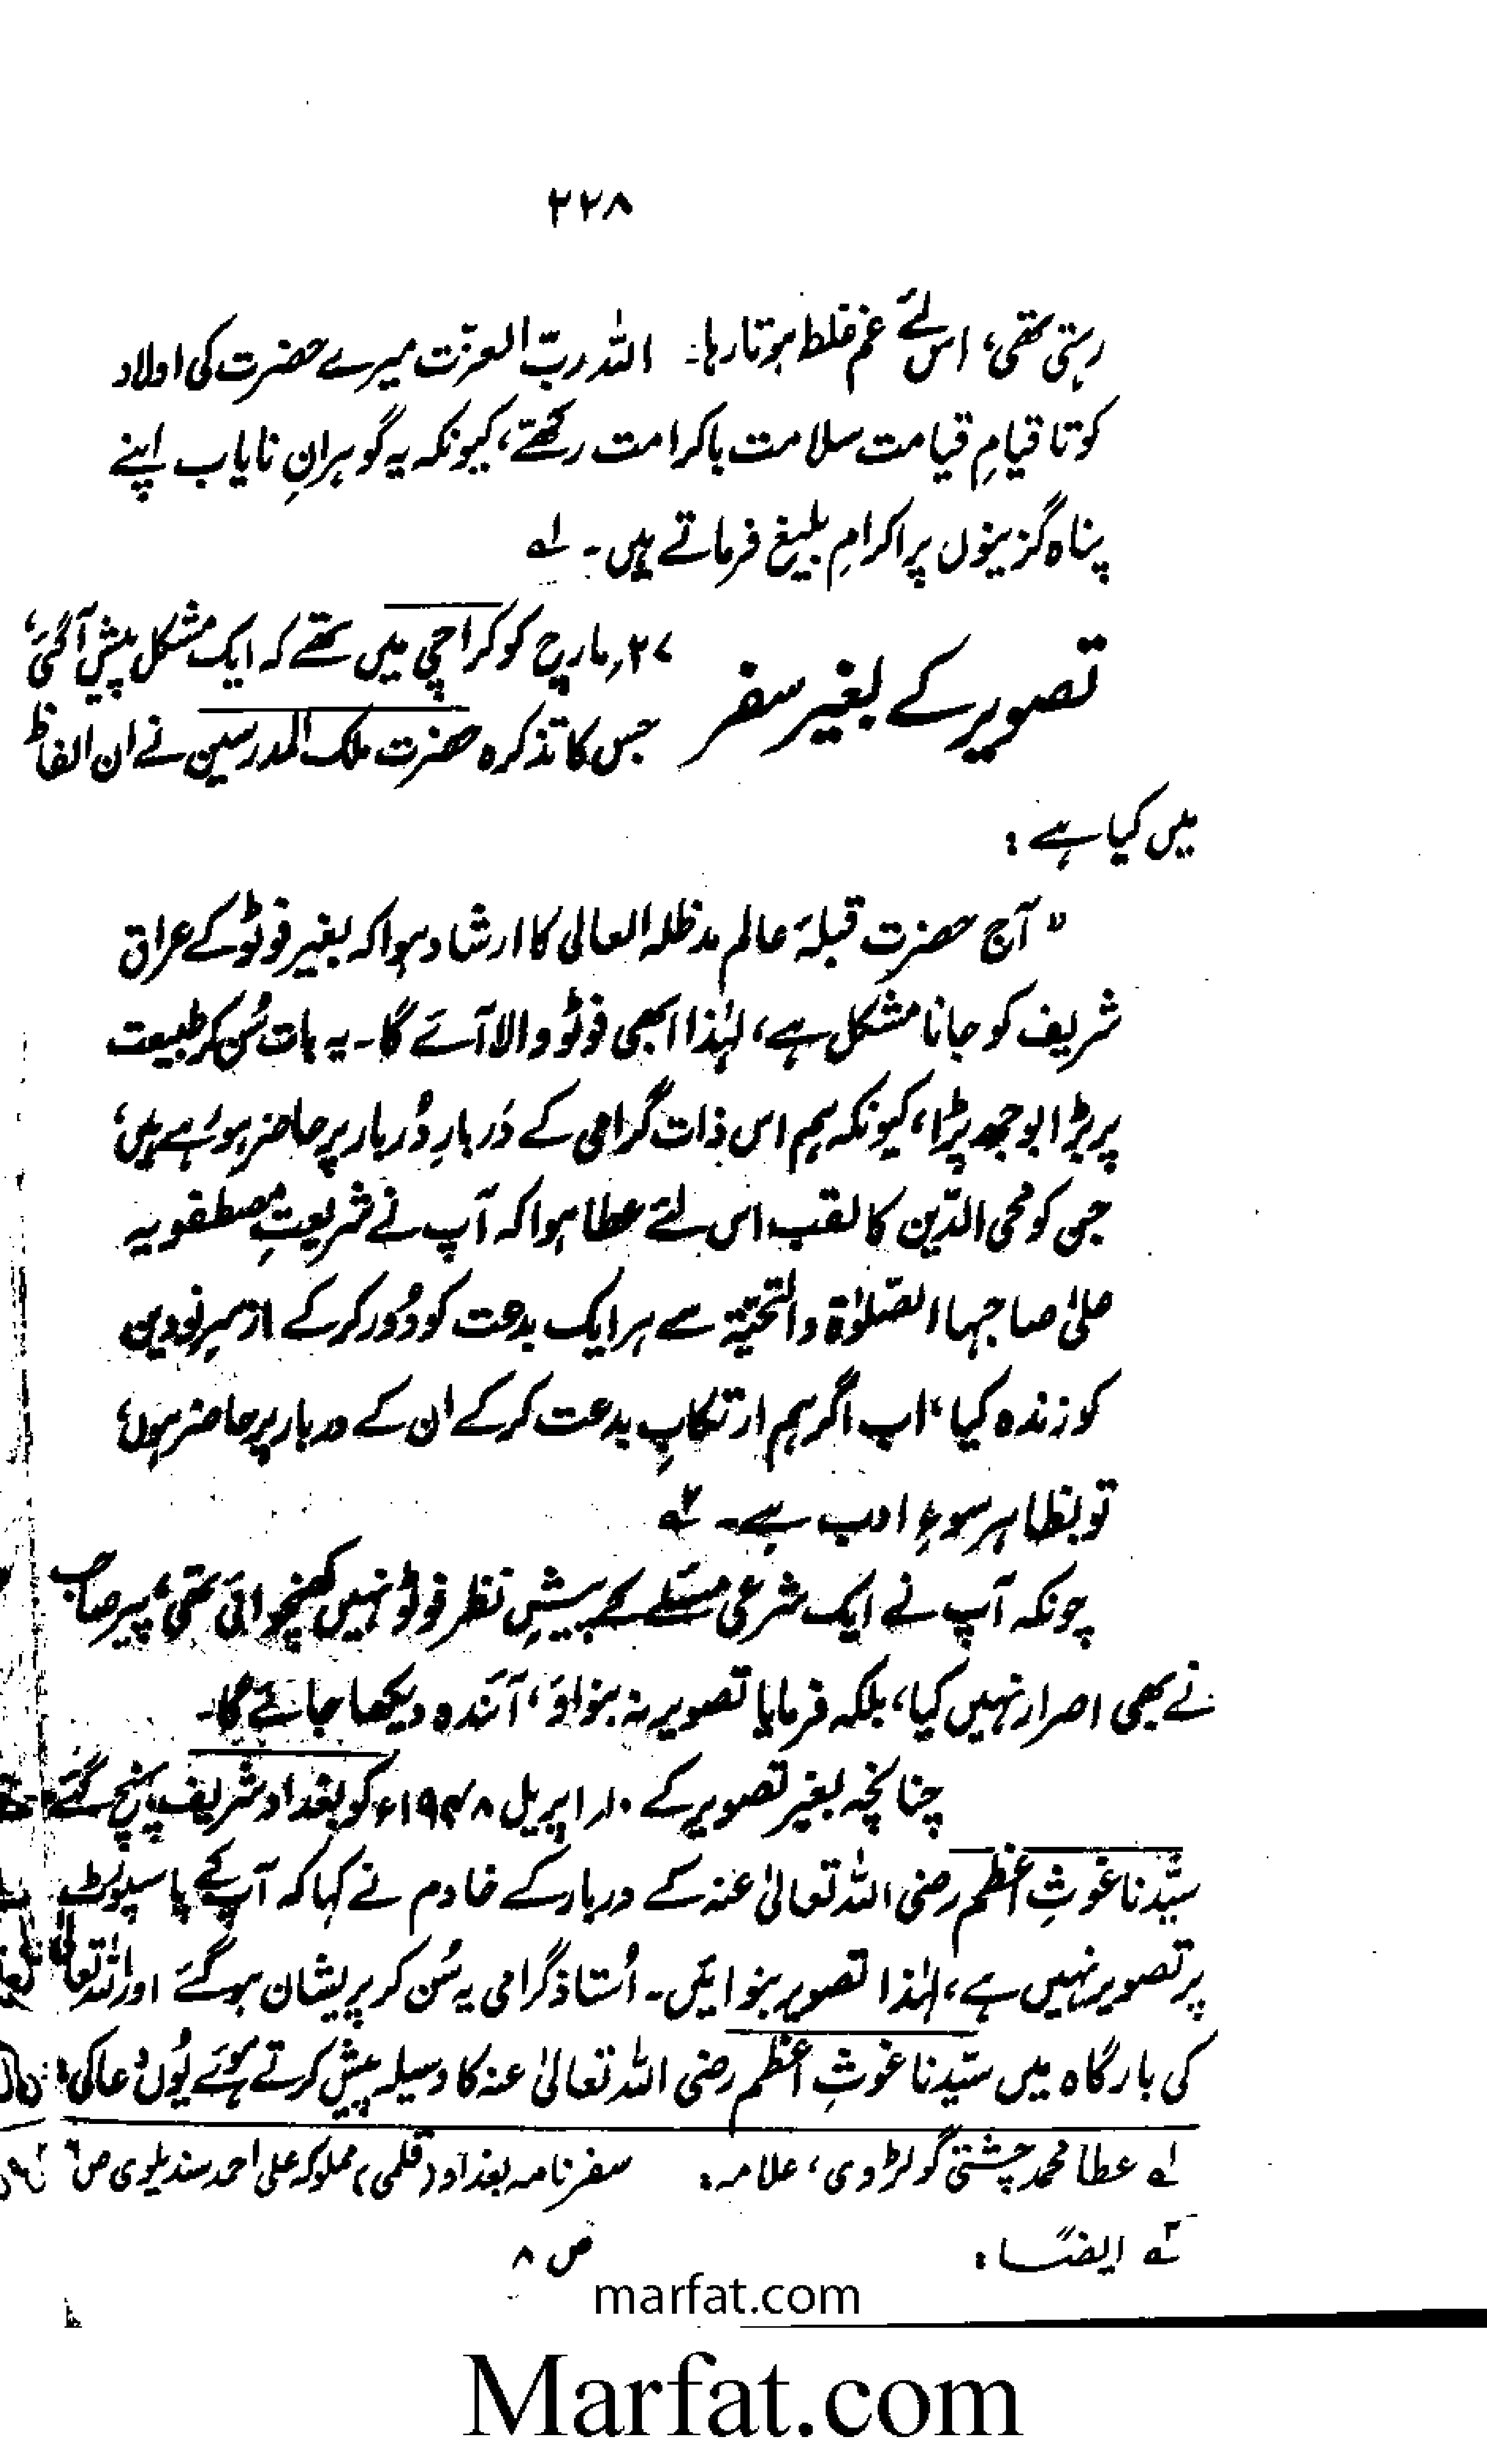 ۲۲۸
رہتی تھی، اس لئے غم غلط ہوتا رہا۔ اللہ ربّ العزّت میرے حضرت کی اولاد
کو تا قیامِ قیامت سلامت باکرامت رکھے، کیونکہ یہ گوہرانِ نایاب اپنے
پناہ گزینوں پر اکرامِ بلیغ فرماتے ہیں۔ لے
تصویر کے بغیر سفر
۲۷؍ مارچ کو کراچی میں تھے کہ ایک مشکل پیش آگئی،
جس کا تذکرہ حضرت ملک المدرسین نے ان الفاظ
میں کیا ہے :
" آج حضرت قبلۂ عالم مدظلہ العالی کا ارشاد ہوا کہ بغیر فوٹو کے عراق
شریف کو جانا مشکل ہے، لہٰذا ابھی فوٹو والا آئے گا۔ یہ بات سُن کر طبیعت
پر بڑا بوجھ پڑا، کیونکہ ہم اس ذات گرامی کے دَربارِ دُربار پر حاضر ہو رہے ہیں،
جس کو محی الدّین کا لقب اس لئے عطا ہوا کہ آپ نے شریعتِ مصطفویہ
علیٰ صاحبہا الصّلوٰۃ والتحیّۃ سے ہر ایک بدعت کو دُور کر کے از سرِنو دین
کو زندہ کیا، اب اگر ہم ارتکابِ بدعت کر کے ان کے دربار پر حاضر ہوں،
تو بظاہر سوءِ ادب ہے۔ ۲ے
چونکہ آپ نے ایک شرعی مسئلے کے پیشِ نظر فوٹو نہیں کھنچوائی تھی، پیر صاحب
نے بھی اصرار نہیں کیا، بلکہ فرمایا تصویر نہ بنواؤ، آئندہ دیکھا جائے گا۔
چنانچہ بغیر تصویر کے ۱۰؍ اپریل ۱۹۴۸ء کو بغداد شریف پہنچ گئے
سیّدنا غوثِ اعظم رضی اللہ تعالیٰ عنہ کے دربار کے خادم نے کہا کہ آپ کے پاسپورٹ
پر تصویر نہیں ہے، لہٰذا تصویر بنوائیں۔ اُستاذ گرامی یہ سُن کر پریشان ہو گئے اور اللہ تعالیٰ
کی بارگاہ میں سیّدنا غوثِ اعظم رضی اللہ تعالیٰ عنہ کا وسیلہ پیش کرتے ہوئے یُوں دُعا کی :
لے عطا محمد چشتی گولڑوی، علامہ: سفرنامہ بغداد (قلمی) مملوکہ علی احمد سندیلوی ص ۶
۲ے ایضًا : ص ۸
marfat.com
Marfat.com